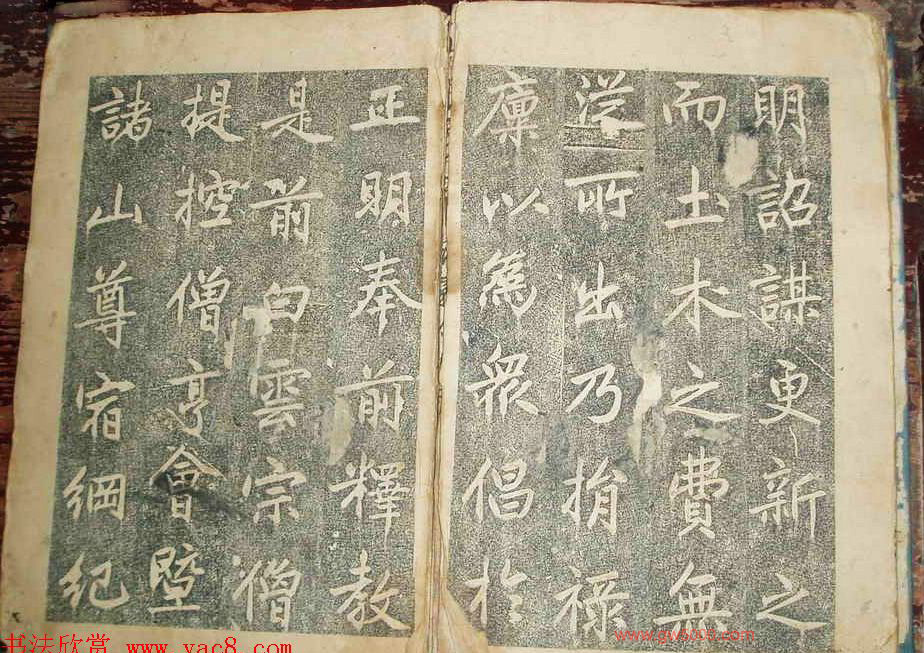 明詔謀更新之
而土木之費無
從所出乃捐祿
廩以爲眾倡於
正明奉前釋教
是前白雲宗僧
提控僧亨會暨
諸山尊宿綱紀
书法欣赏 www.yac8.com